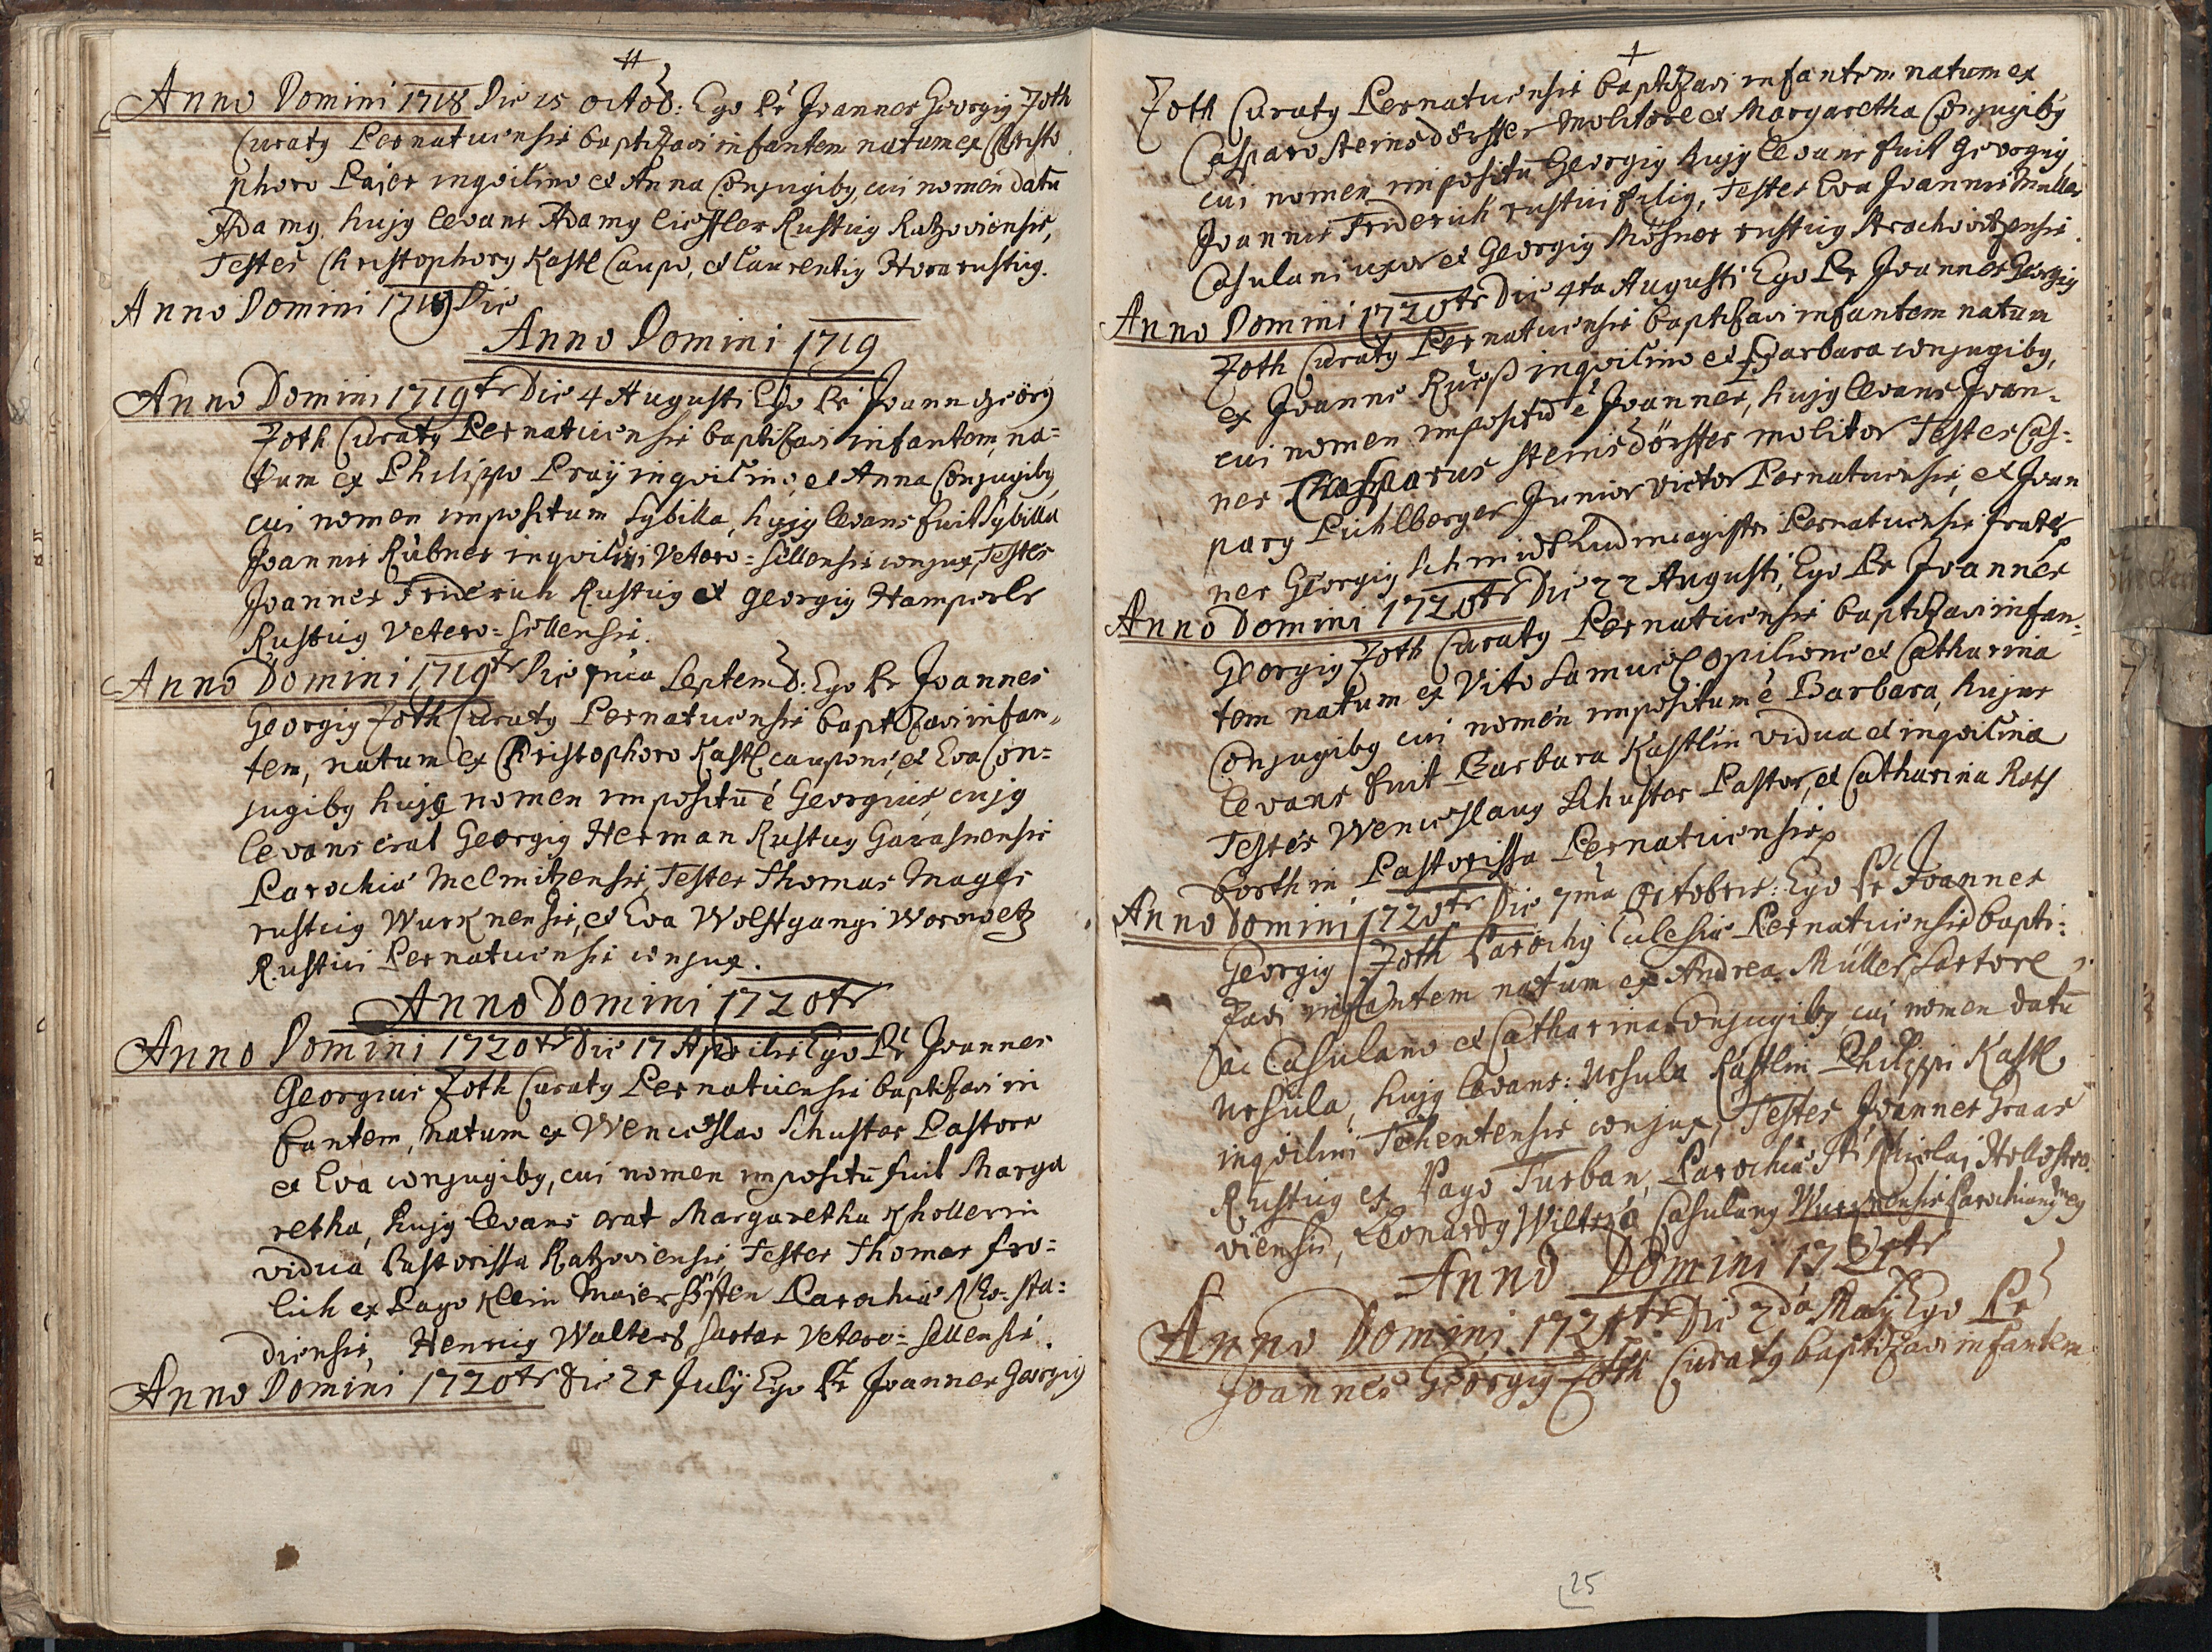 Anno Domini 1718 Die 15 octob: Ego Pr Joannes Georgig Zoth
Curatg Pernaticensis baptizavi infantem natum ex Christo
phoro Paier inqvilino et Anna Conjugibg, cui nomen datū
Adamg, hujg levans Adamg Rusticg Ratzoviensis,
Testes Christophorg Kastl Caupo, et Laurentig Hora rusticg.
Anno Domini 1719 Die
Anno Domini 1719
Anno Domini 1719 Die 4 Augusti Ego Pr Joann georg
Zoth Curatg Pernaticensis baptizavi infantem, na=
tum ex Philippo Praÿ inqvilino, et Anna Conjugibg,
cui nomen impositum Sybilla, hujg levans fuit Sybilla
Joannis Rübner inqvilini Vetero=Sellensis conjux, Testes
Joannes Friderich Rusticg et georgig Hamperle
Rusticg Vetero=Sellensis.
Anno Domini 1719 Die Septemb: Ego Pr Joannes
Georgig Zoth Curatg Pernaticensis baptizavi infan=
tem, natum ex Christophoro Kastl caupone, et Eva Con=
jugibg hujg nomen impositū é Georgius, cujg
levans erat Georgig Herman Rusticg Garasnensis
Parochiæ Melmitzensis, Testes Thomas Mages
rusticg Wurknensis, et Eva Wolffgangi Worowetz
Rustici Pernaticensis conjux.
Anno Domini 1720
Anno Domini 1720 Die 17 Aprilis Ego Pr Joannes
Georgius Zoth Curatg Pernaticensis baptizavi in
fantem, natum ex Wenceslao Schuster Pastore
et Eva conjugibg, cui nomen impositū fuit Marga
retha, hujg levans erat Margaretha Khollerin
vidua Pastorissa Ratzoviensis, Testes Thomas fro=
lich ex Pago Klein Maierhöffen Parochiæ Neo-sta=
diensis, Henricg Walters Sartor Vetero=Sellensis.
Anno Domini 1720 Die 21 Julij Ego Pr Joannes Georgig
Zoth Curatg Pernaticensis baptizavi infantem natum ex
Casparo Steinsdörffer Molitore et Margaretha Conjugibg
cui nomen impositū Georgig hujg levans fuit Georgig
Joannis Friderich rustici filig, Testes Eva Joannis Muller
Casulani uxor et Georgig Mösner rusticg Strachovitzensis.
Anno Domini 1720 Die 4ta Augusti Ego Pr Joannes Georgig
Zoth Curatg Pernaticensis baptizavi infantem natum
ex Joanne inqvilino et Barbara conjugibg,
cui nomen impositū é Joannes, hujg levans Joan=
nes Casparus Steinsdörffer molitor Testes Cas=
parg Pichlberger Junior victor Pernaticensis, et Joan
nes Georgig Schmidt Ludimagistri Pernaticensis frater
Anno Domini 1720 Die 22 Augusti, Ego Pr Joannes
Georgig Zoth Curatg Pernaticensis baptizavi infan=
tem natum ex Vito Samuel opilione et Catharina
Conjugibg cui nomen impositum é Barbara, hujus
levans fuit Barbara Kastlin vidua et inqvilina
Testes Wenceslaug Schuster Pastor, et Catharina
Pastorissa Pernaticensis
Anno Domini 1720 Die 7ma Octobris: Ego Pr Joannes
Georgig Zoth Parochg Eclesiæ Pernaticensis bapti=
zavi infantem natum ex Andrea Müller Sartore
ac Casulano et Catharina conjugibg, cui nomen datū
Ursula, hujg levans: Ursula Kastlin Philippi Kastl
inqvilini conjux, Testes Joannes
Rusticg ex Pago Turban, Parochiæ Sti Nicolai
viensis, Leonardg Casulang Wurknensis
Anno Domini 1721
Anno Domini 1721 Die 2da Maij Ego Pr
Joannes Georgig Zoth Curatg baptizavi infantem
25